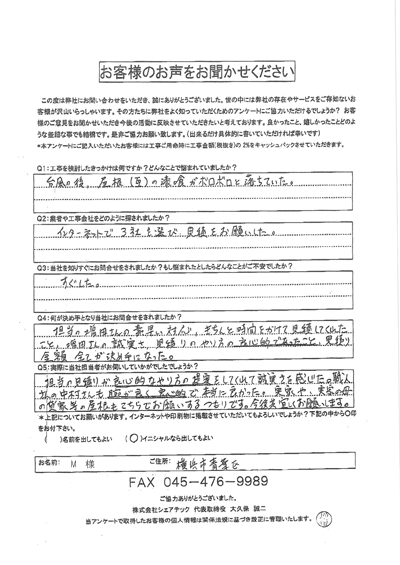 お客様のお声をお聞かせください
この度は弊社にお問い合わせをいただき、誠にありがとうございました。世の中には弊社の存在やサービスをご存知ないお
客様が沢山いらっしゃいます。その方たちに弊社をよく知っていただくためのアンケートにご協力いただけるでしょうか？ お客
様のご意見をお聞かせいただき今後の活動に反映させていただきたいと考えております。良かったこと、嬉しかったことどのよ
うな些細な事でも結構です。是非ご協力お願い致します。（出来るだけ具体的に書いていただければ幸いです）
*本アンケートにご記入いただいたお客様には工事ご用命時に工事金額(税抜き)の2%をキャッシュバックさせていただきます。
Q1:工事を検討したきっかけは何ですか？どんなことで悩まれていましたか？
台風の後、屋根（瓦）の漆喰がボロボロと落ちていた。
Q2:業者や工事会社をどのように探されましたか？
インターネットで3社を選び、見積をお願いした。
Q3:当社を知りすぐにお問合せをされましたか？もし悩まれたとしたらどんなことがご不安でしたか？
すぐした。
Q4:何が決め手となり当社にお問合せをされましたか？
担当の増田さんの素早い対応、きちんと時間をかけて見積してくれた
こと、増田さんの誠実さ、見積りのやり方の良心的であったこと、見積り
金額 全てが決め手になった。
Q5:実際に当社担当者がお伺いしていかがでしたでしょうか？
担当の見積りが良心的なやり方の提案をしてくれて誠実さを感じた。職人
さんの中村さんも腕が良く、良心的で本当に良かった。実家や、実家の母
の貸家等の屋根もこちらでお願いするつもりです。今後共宜しくお願いします。
*上記についてお願いがあります。インターネットや印刷物に掲載させていただいてもよろしいでしょうか？下記の中から〇印
をお付下さい。
（　）名前を出してもよい　（〇）イニシャルなら出してもよい
お名前： M 様　ご住所： 横浜市青葉区
FAX 045-476-9989
ご協力ありがとうございました。
株式会社シェアテック 代表取締役 大久保 誠二
当アンケートで取得したお客様の個人情報は関係法規に基づき厳正に管理いたします。